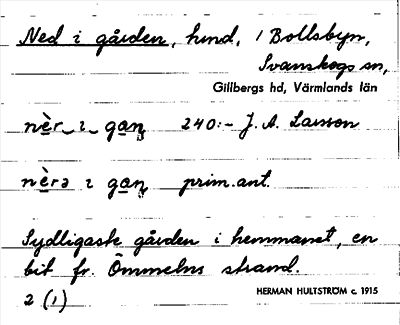 Ned i gården, hmd, i Bollsbyn,
Svanskogs sn,
Gillbergs hd, Värmlands län
nèr i gan 240:- J. A. Larsson
nèrə i gan prim.ant.
Sydligaste gården i hemmanet, en
bit fr. Ömmelns strand.
2 (1)
HERMAN HULTSTRÖM c. 1915